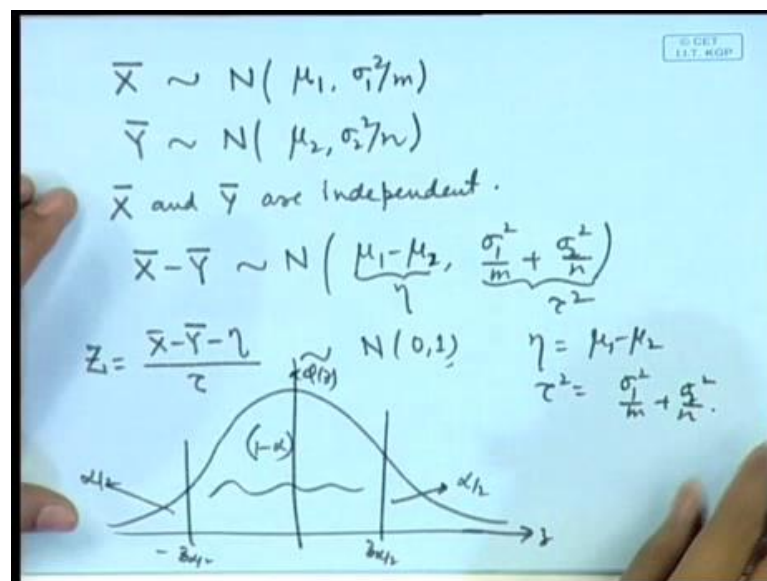 © CET
I.I.T. KGP
X̄ ~ N( μ₁, σ₁²/m)
Ȳ ~ N( μ₂, σ₂²/n)
X̄ and Ȳ are independent.
X̄-Ȳ ~ N( μ₁-μ₂, σ₁²/m + σ₂²/n )
η τ²
Z = (X̄-Ȳ-η)/τ ~ N(0,1) η = μ₁-μ₂
φ(z) τ² = σ₁²/m + σ₂²/n.
(1-α)
α/2 α/2
-z_α/2 z_α/2 z